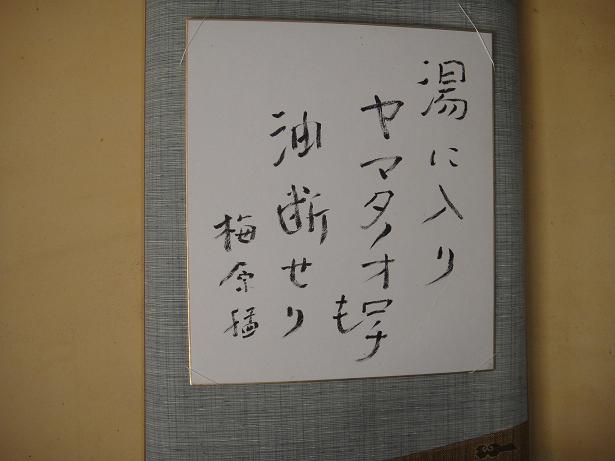 湯に入り
ヤマタノオロチ
も
油断せり
梅原猛